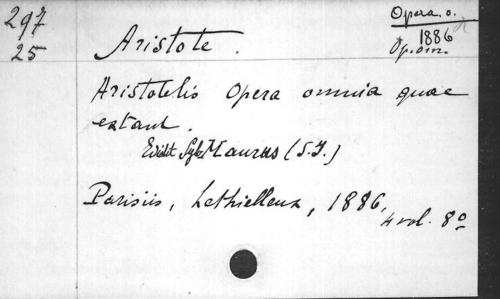 297
25
Opera. o.
1886
Op. om.
Aristote.
Aristotelis Opera omnia quae
extant.
Edidit Sylv. Maurus (S.J.)
Parisiis, Lethielleux, 1886,
4 vol. 8°